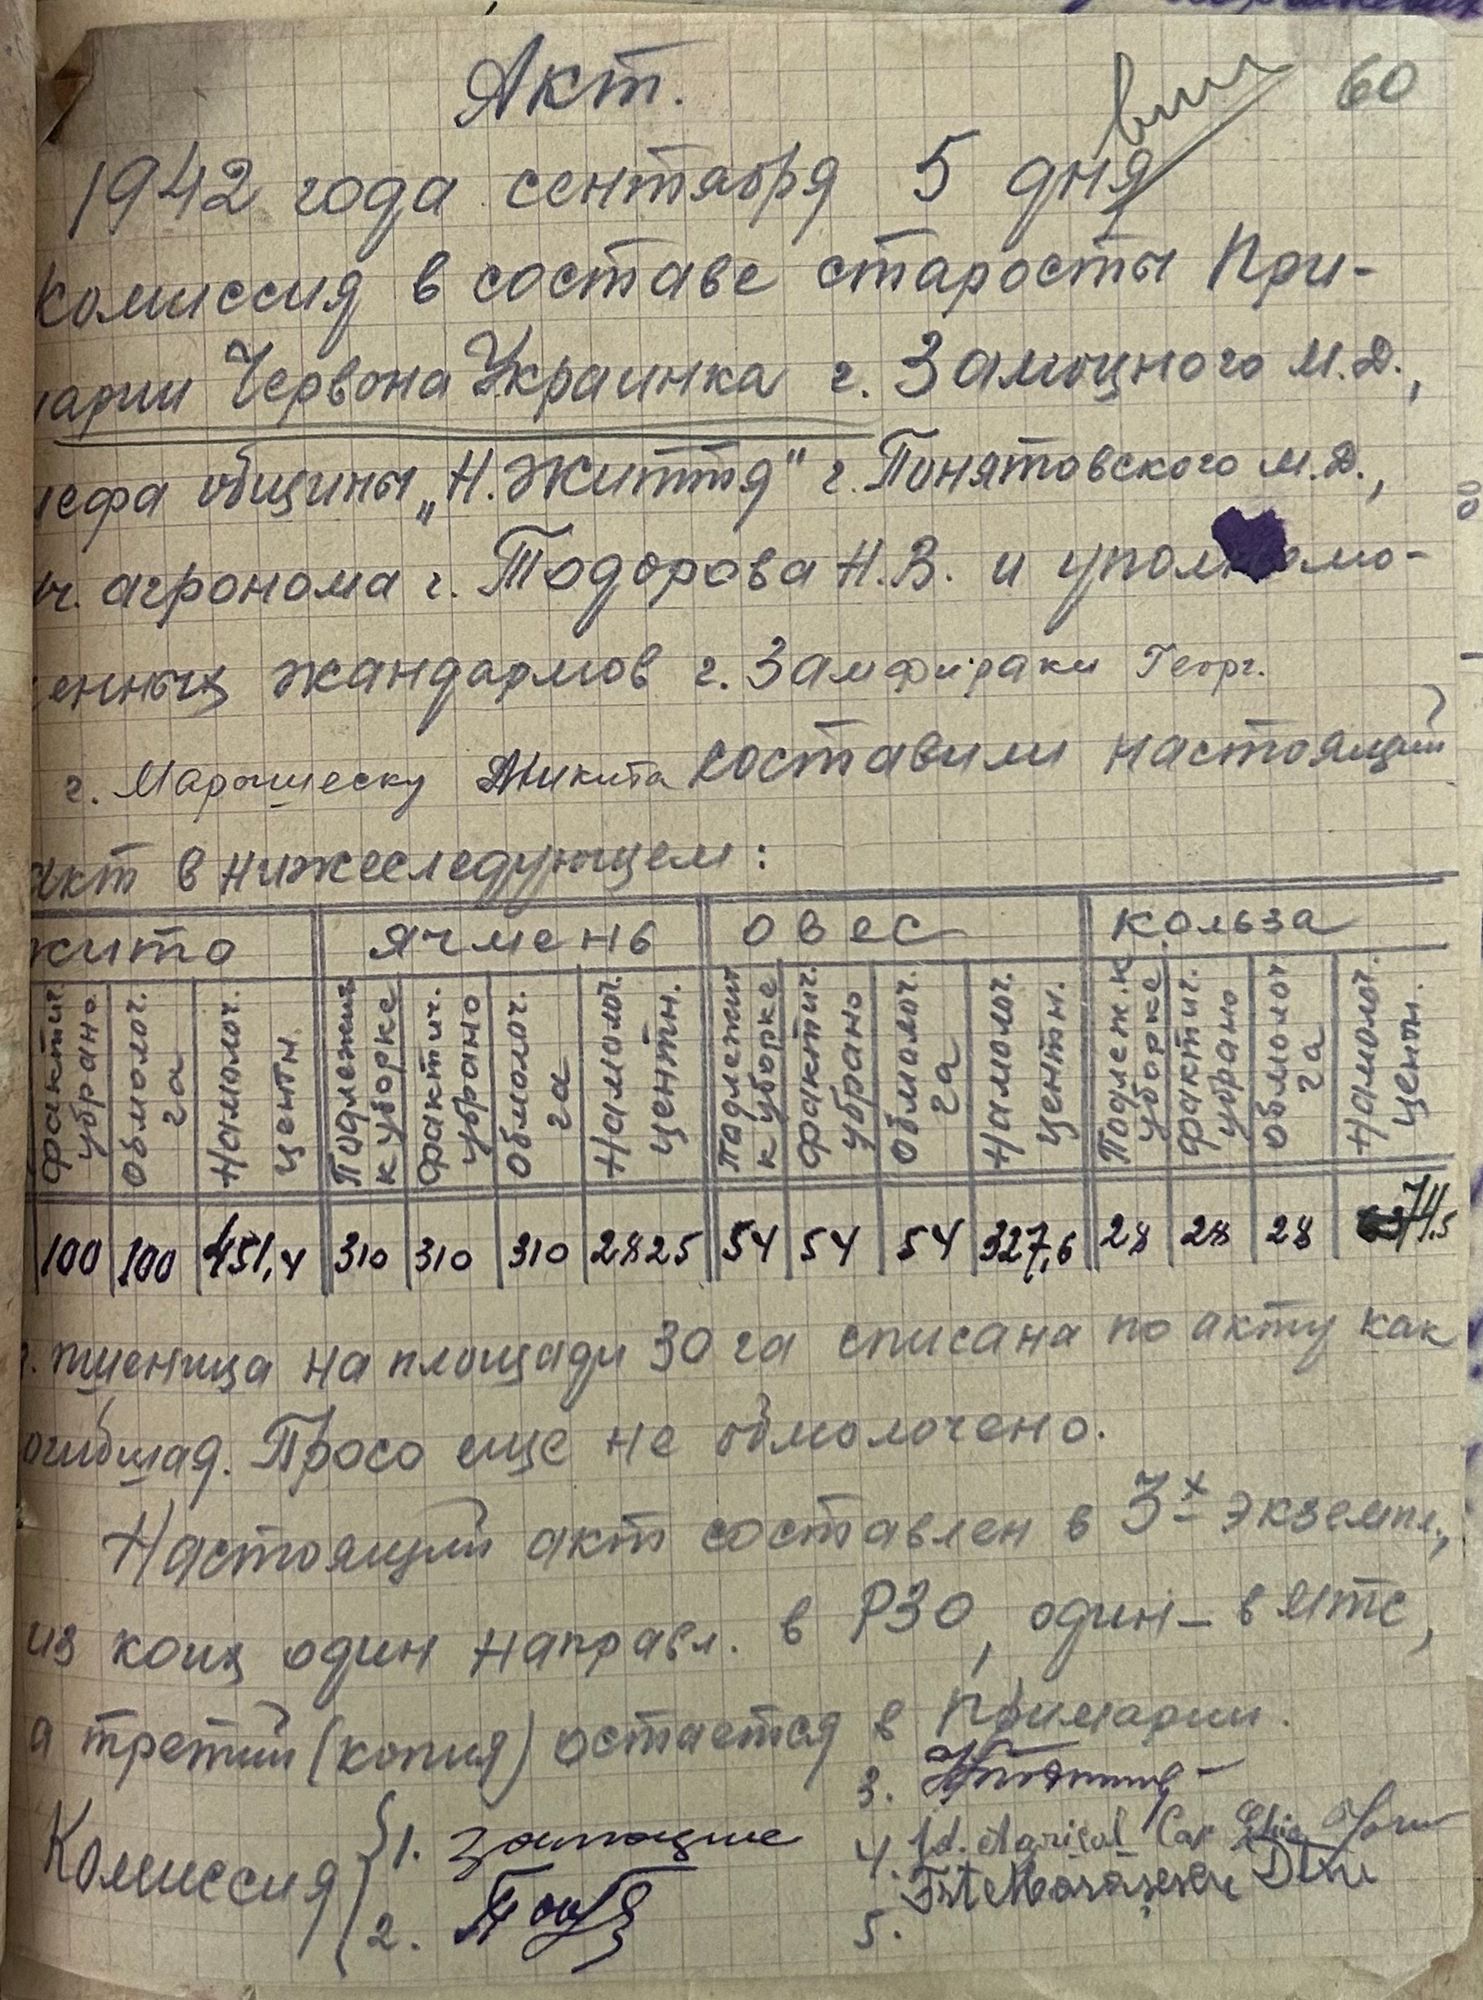 60
Акт.
1942 года сентября 5 дня
Комиссия в составе старосты При-
арии Червона Украинка г. Замощного М.Д.,
ефа общины „Н. Життя" г. Понятовского М.Д.,
ч. агронома г. Тодорова Н.В. и уполномо-
енных жандармов г. Замфираки Георг.
г. Марошеску составили настоящий
акт в нижеследующем:
жито ячмень овес кольза
фактич. убрано обмолоч. га Намолоч. центн. Подлежит к уборке фактич. убрано обмолоч. га Намолоч. центн. подлежит к уборке фактич. убрано обмолоч га Намолоч. центн. Подлеж. к уборке фактич. убрано обмолоч га Намолот. центн.
100 100 451,4 310 310 310 2825 54 54 54 327,6 28 28 28 74,5
пшеница на площади 30 га списана по акту как
огибшая. Просо еще не обмолочено.
Настоящий акт составлен в 3х экземпл.,
из коих один направл. в РЗО, один – в МТС,
а третий (копия) остается в Примарии.
Комиссия
1.
2.
3.
4. Agricol
5.